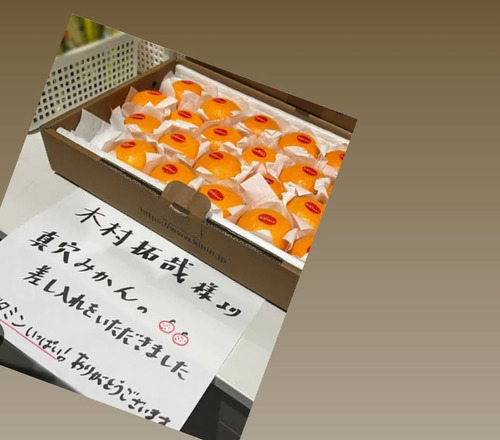 https://www.
木村拓哉様より
真穴みかんの
差し入れをいただきました
タミンいっぱい!ありがとうございます